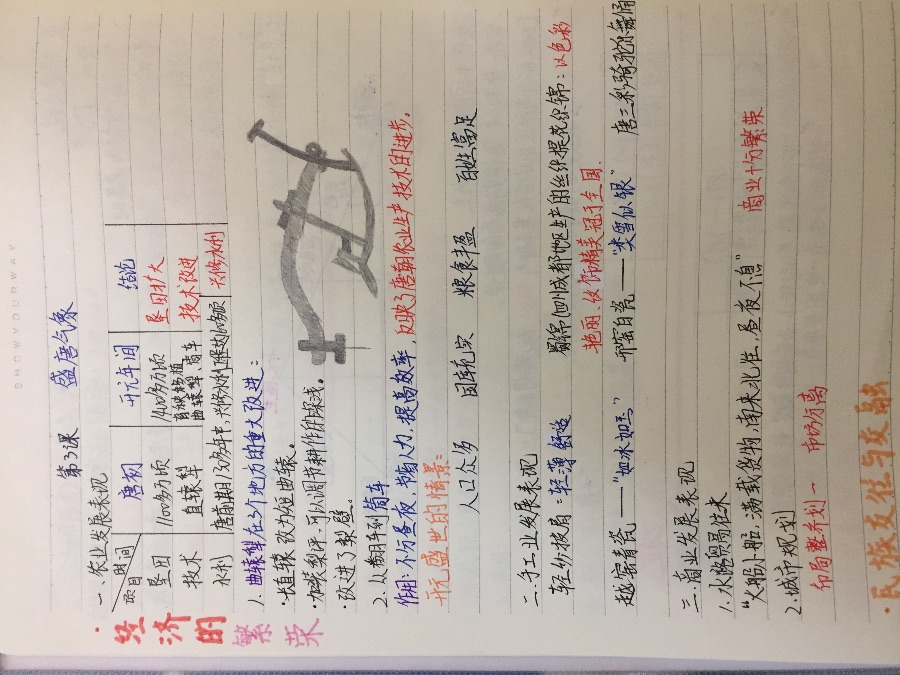 SHOWYOURWAY
第3课 盛唐气象
·经济的繁荣
一、农业发展表现
时间 项目 唐初 开元年间 结论
垦田 1100多万顷 1400多万顷 垦田扩大
技术 直辕犁 曲辕犁、筒车 技术改进
水利 兴修水利
1. 曲辕犁在3个地方的重大改进：
·长直辕改为短曲辕。
·加装犁评，可以调节耕作的深浅。
·改进了犁壁。
2. 从翻车到筒车
作用：不分昼夜，节省人力，提高效率，反映了唐朝农业生产技术的进步。
开元盛世的情景：
人口众多 国库充实 粮食丰盈 百姓富足
二、手工业发展表现
轻纱披肩：轻薄舒适 蜀锦(四川成都地区生产的丝织提花织锦：以色彩
艳丽、纹饰精美冠于全国.
越窑青瓷——“如冰如玉” 邢窑白瓷——“类雪似银” 唐三彩骑驼乐舞俑
三、商业发展表现
1. 水陆贸易往来
“大船小船，满载货物，南来北往，昼夜不息” 商业十分繁荣
2. 城市规划
布局整齐划一 市坊分离
·民族交往与交融